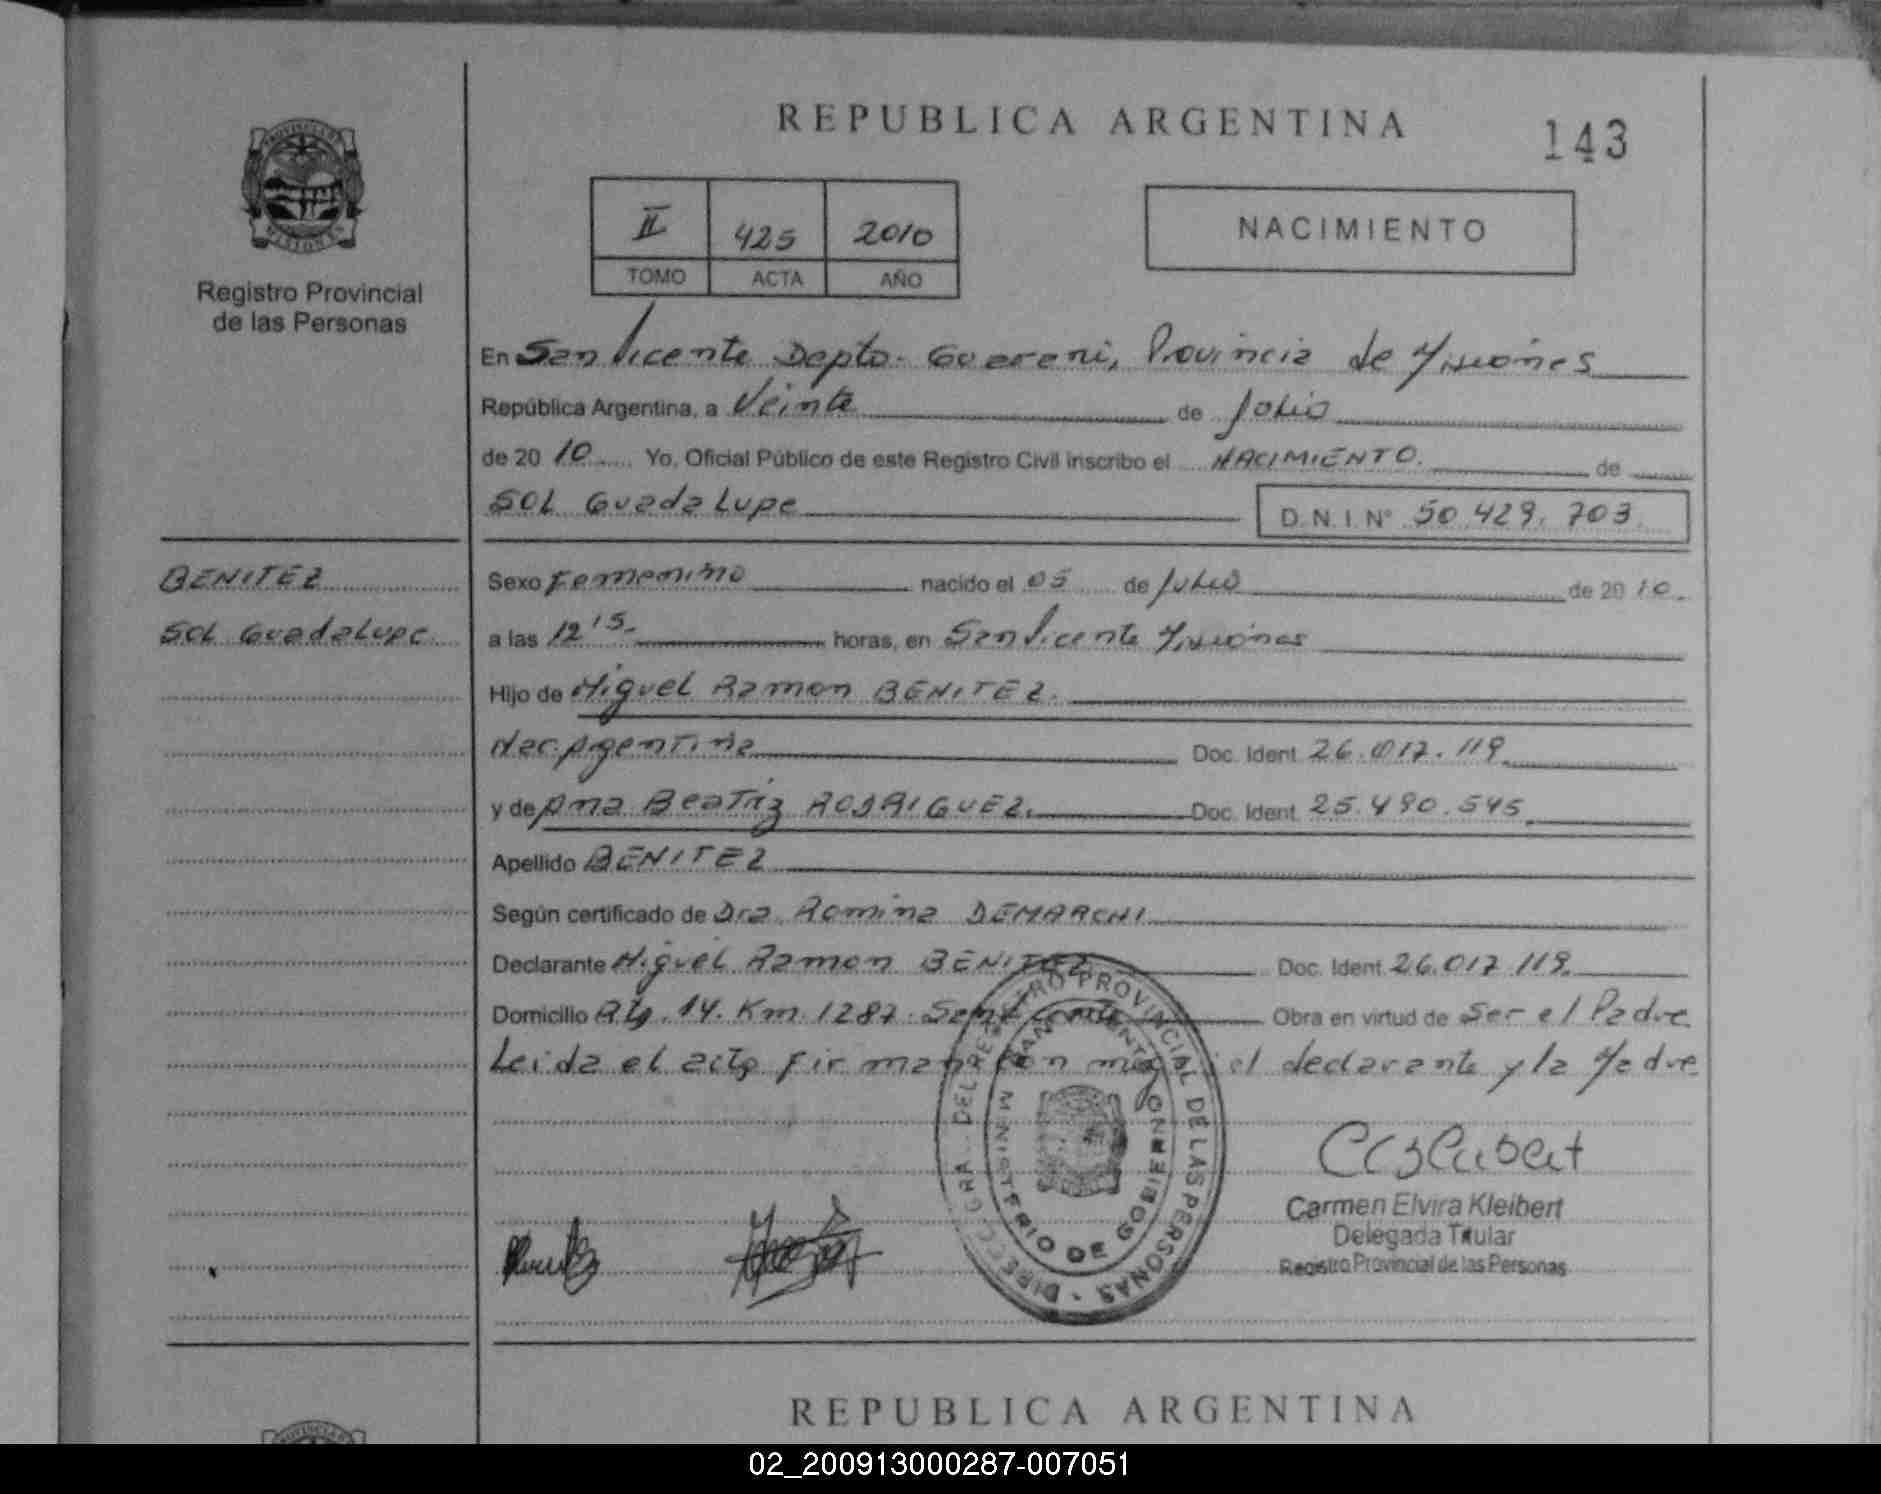 REPUBLICA ARGENTINA
143
II 425 2010
TOMO ACTA AÑO
NACIMIENTO
PROVINCIA DE
MISIONES
Registro Provincial
de las Personas
En San Vicente Depto. Guarani, Provincia de Misiones
República Argentina, a Veinte de Julio
de 20 10 Yo, Oficial Público de este Registro Civil inscribo el NACIMIENTO. de
SOL Guadalupe D.N.I. N° 50.429.703
BENITEZ
SOL Guadalupe
Sexo Femenino nacido el 05 de Julio de 20 10.
a las 12 15. horas, en San Vicente Misiones
Hijo de Miguel Ramon BENITEZ.
Nac. Argentina Doc. Ident. 26.017.119
y de Ana Beatriz RODRIGUEZ. Doc. Ident. 25.490.545
Apellido BENITEZ
Según certificado de Dra. Romina DEMARCHI
Declarante Miguel Ramon BENITEZ Doc. Ident. 26.017.119.
Domicilio Rta. 14. Km. 1287. San Vicente Obra en virtud de Ser el Padre
Leida el acta firman con migo el declarante y la Madre
DIRECC. GRA. DEL REGISTRO PROVINCIAL DE LAS PERSONAS
MINISTERIO DE GOBIERNO
Carmen Elvira Kleibert
Delegada Titular
Registro Provincial de las Personas
REPUBLICA ARGENTINA
PROVINCIA
02_200913000287-007051